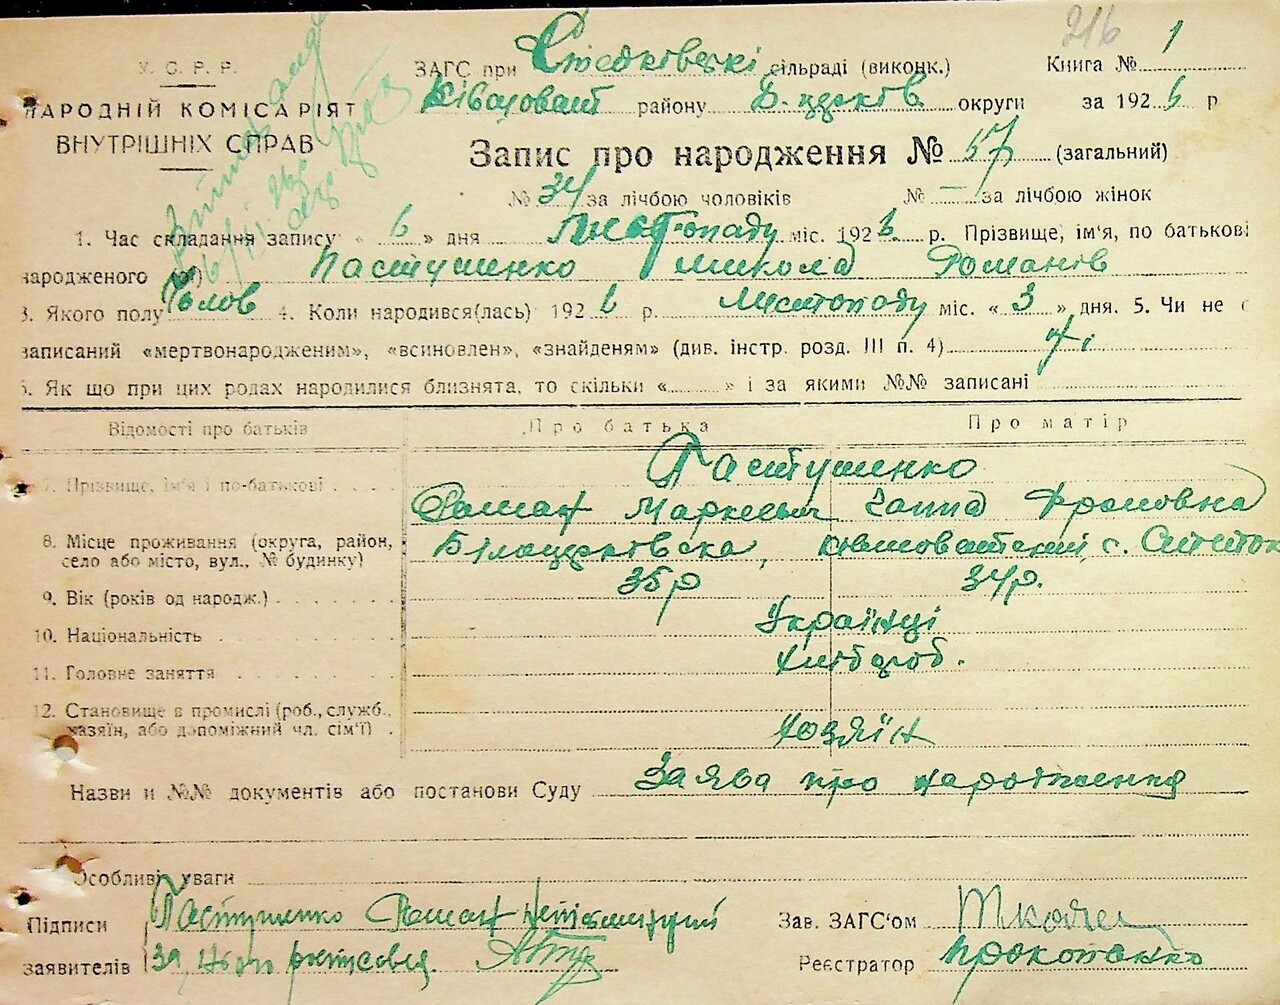 216
У. С. Р. Р.
НАРОДНІЙ КОМІСАРІЯТ
ВНУТРІШНІХ СПРАВ
ЗАГС при сільраді (виконк.) Книга № 1
району Б. церків округи за 192 6 р
Запис про народження № 57 (загальний)
№ 34 за лічбою чоловіків № — за лічбою жінок
1. Час складання запису « 6 » дня Листопаду міс. 192 6 р. Прізвище, ім'я, по батькові
народженого (ої) Пастушенко Микола Романов
3. Якого полу Чолов 4. Коли народився(лась) 192 6 р. Листопаду міс. « 3 » дня. 5. Чи не є
записаний «мертвонародженим», «всиновлен», «знайденям» (див. інстр. розд. III п. 4) Ні
6. Як що при цих родах народилися близнята, то скільки « » і за якими №№ записані
Відомості про батьків Про батька Про матір
7. Прізвище, ім'я і по-батькові Пастушенко
Роман Маркович Ганна
8. Місце проживання (округа, район, село або місто, вул., № будинку) Білоцерківська, с.
9. Вік (років од народж.) 35 р 34 р.
10. Національність Українці
11. Головне заняття Хлібороб.
12. Становище в промислі (роб., служб., хазяїн, або допоміжний чл. сім'ї) Хозяїн
Назви и №№ документів або постанови Суду Заява про народження
Особливі уваги
Підписи Пастушенко Роман неписьменний Зав. ЗАГС'ом
заявителів За нього Реєстратор Прокопенко